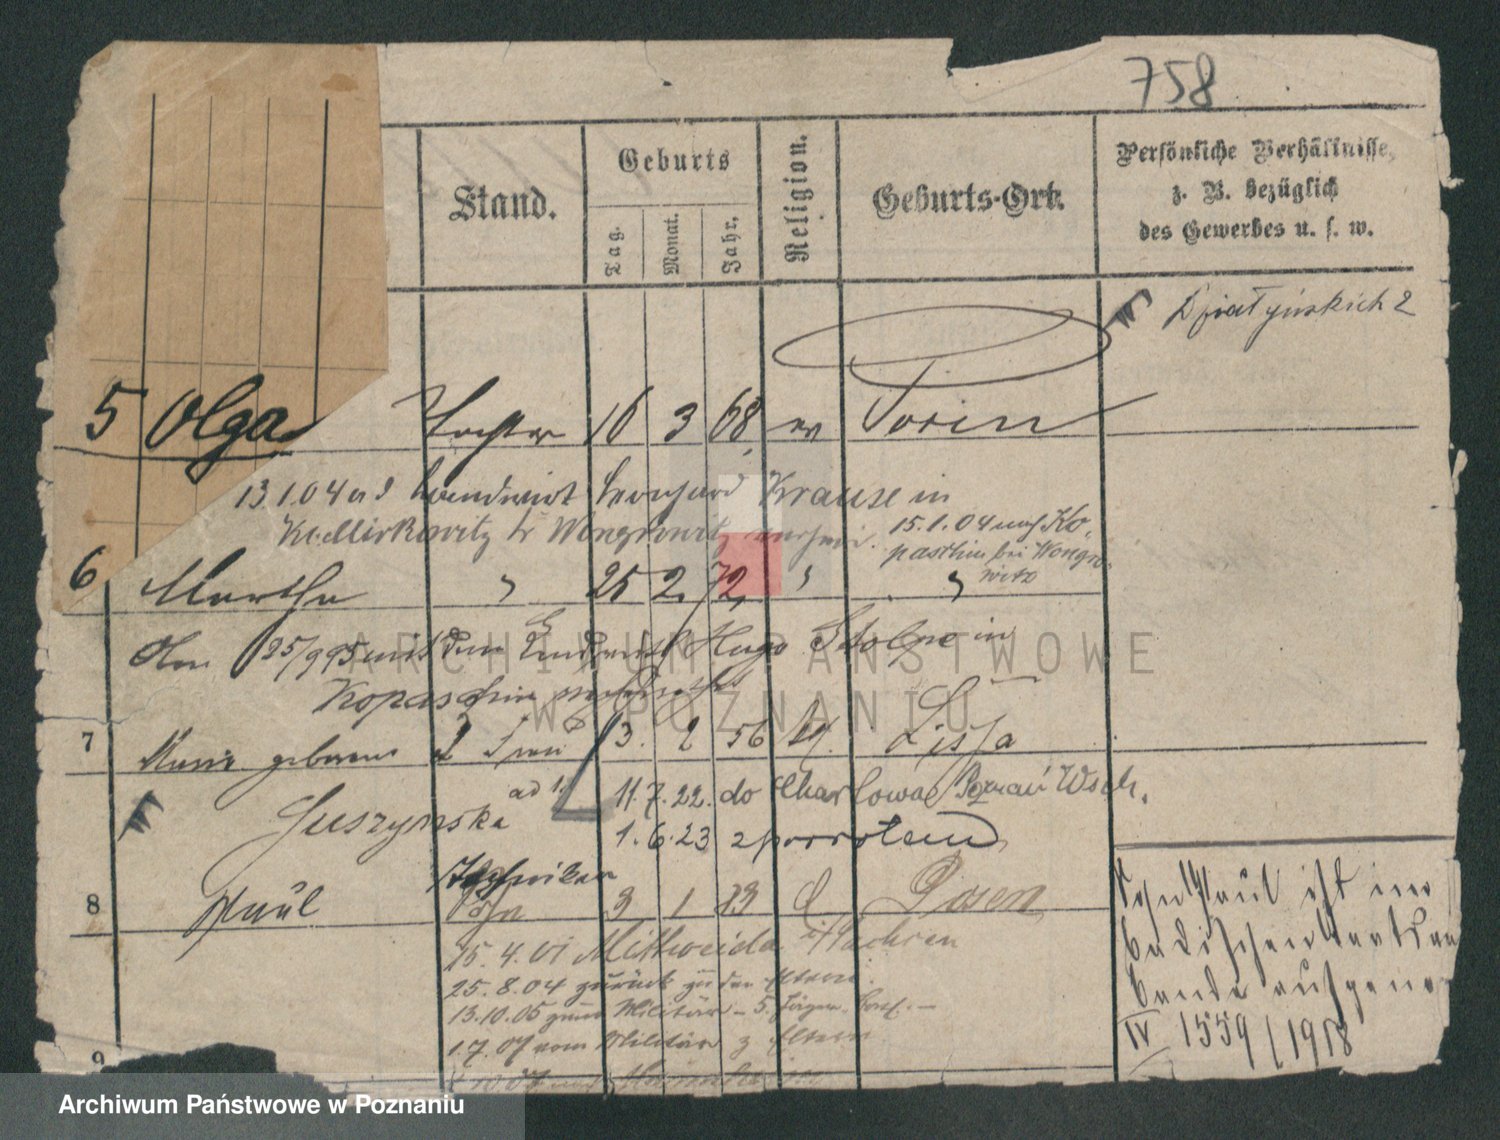 758
Stand.
Geburts
Tag.
Monat.
Jahr.
Religion.
Geburts-Ort.
Persönliche Verhältnisse,
z. B. bezüglich
des Gewerbes u. s. w.
Działyńskich 2
5 Olga Tochter 16 3 68 ev Posen
13.1.04 Landwirt Bernhard Krause in
15.1.04 nach Ko-
paschin bei Wongro-
witz
6 Martha " 25 2 72 " "
25/9 95 mit dem Hugo Stolpe in
Kopaschin
7 Marie geborene Frau 3. 2 56 Lissa
ad 1. 11.7.22. do Charłowa Poznań Wsch.
Suszynska 1.6.23 z powrotem
Techniker
8 Paul 3 1 83 Posen
15.4.01 Mittweida i/Sachsen
25.8.04 zurück zu den Eltern
13.10.05 zum Militär - 5. Jäger
1.7.07 vom Militär z Eltern
Sohn Paul ist im
badischen Staatsver
bande aufgenom
IV 1559/1918
9
ARCHIWUM PAŃSTWOWE
W POZNANIU
Archiwum Państwowe w Poznaniu